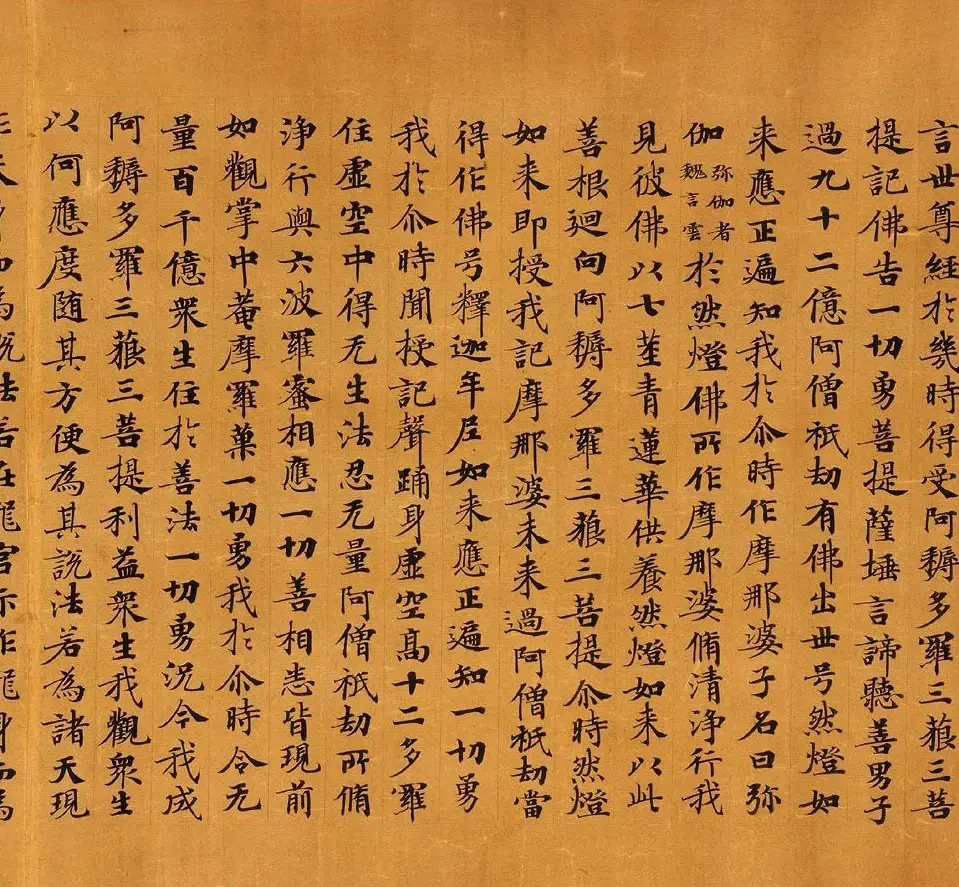 言世尊經於幾時得受阿耨多羅三藐三菩
提記佛告一切勇菩提薩埵言諦聽善男子
過九十二億阿僧祇劫有佛出世号然燈如
来應正遍知我於尒時作摩那婆子名曰弥
伽弥伽者魏言雲於然燈佛所作摩那婆脩清淨行我
見彼佛以七莖青蓮華供養然燈如来以此
善根迴向阿耨多羅三藐三菩提尒時然燈
如来即授我記摩那婆未来過阿僧祇劫當
得作佛号釋迦牟尼如来應正遍知一切勇
我於尒時聞授記聲踊身虛空高十二多羅
住虛空中得无生法忍无量阿僧祇劫所脩
淨行與六波羅蜜相應一切善相悉皆現前
如觀掌中菴摩羅菓一切勇我於尒時令无
量百千億衆生住於善法一切勇況今我成
阿耨多羅三藐三菩提利益衆生我觀衆生
以何應度随其方便為其說法若為諸天現
天身而為說法若在龍宮示作龍身而為